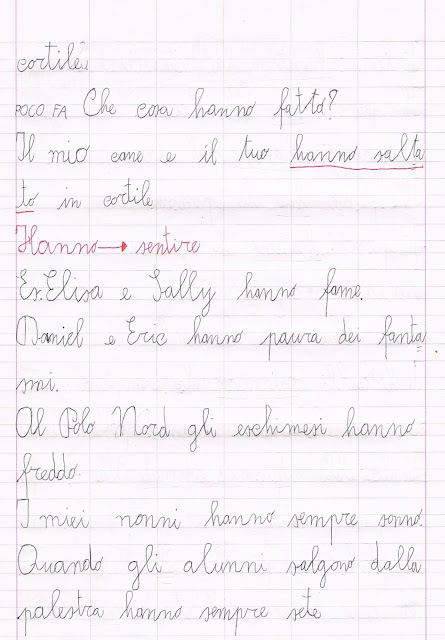 cortile.
POCO FA Che cosa hanno fatto?
Il mio cane e il tuo hanno salta
to in cortile
Hanno → sentire
Es. Elisa e Sally hanno fame.
Daniel e Eric hanno paura dei fanta
smi.
Al Polo Nord gli eschimesi hanno
freddo.
I miei nonni hanno sempre sonno.
Quando gli alunni salgono dalla
palestra hanno sempre sete